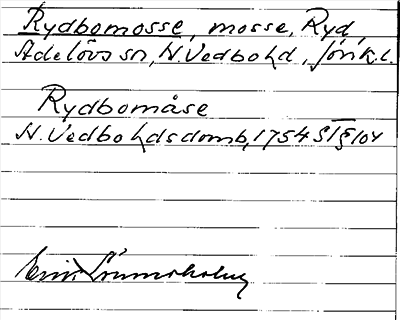 Rydbomosse, mosse, Ryd,
Adelövs sn, N. Vedbo hd, Jönk. l.
Rydbomåse
N. Vedbo hds domb, 1754 ST § 104